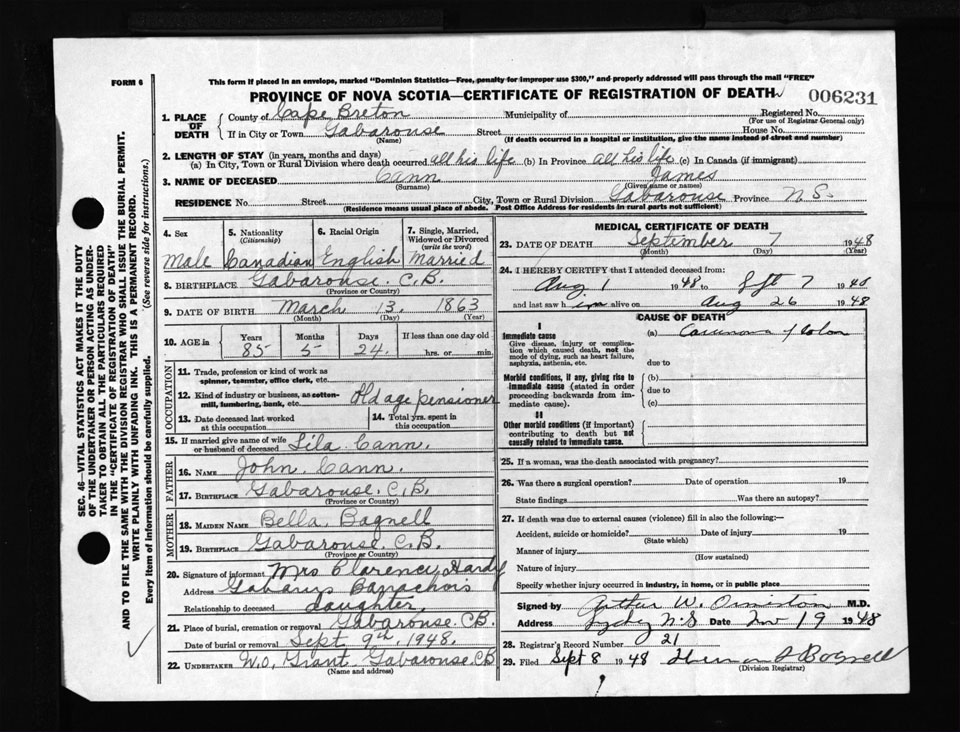 FORM 6
This form if placed in an envelope, marked "Dominion Statistics—Free, penalty for improper use $300," and properly addressed will pass through the mail "FREE"
PROVINCE OF NOVA SCOTIA—CERTIFICATE OF REGISTRATION OF DEATH
006231
1. PLACE OF DEATH
County of Cape Breton Municipality of Registered No.
(For use of Registrar General only)
If in City or Town Gabarouse Street House No.
(Name) (If death occurred in a hospital or institution, give the name instead of street and number)
2. LENGTH OF STAY (in years, months and days)
(a) In City, Town or Rural Division where death occurred all his life (b) In Province all his life (c) In Canada (if immigrant)
3. NAME OF DECEASED Cann James
(Surname) (Given name or names)
RESIDENCE No. Street City, Town or Rural Division Gabarouse Province N.S.
(Residence means usual place of abode. Post Office Address for residents in rural parts not sufficient)
4. Sex 5. Nationality (Citizenship) 6. Racial Origin 7. Single, Married, Widowed or Divorced (write the word)
Male Canadian English Married
8. BIRTHPLACE Gabarouse C.B.
(Province or Country)
9. DATE OF BIRTH March 13. 1863
(Month) (Day) (Year)
10. AGE in Years Months Days If less than one day old
85 5 24. hrs. or min.
OCCUPATION
11. Trade, profession or kind of work as spinner, teamster, office clerk, etc.
12. Kind of industry or business, as cotton-mill, lumbering, bank, etc. Old age pensioner
13. Date deceased last worked at this occupation
14. Total yrs. spent in this occupation
15. If married give name of wife or husband of deceased Lila Cann.
FATHER
16. NAME John Cann.
17. BIRTHPLACE Gabarouse. C.B.
(Province or Country)
MOTHER
18. MAIDEN NAME Bella Bagnell
19. BIRTHPLACE Gabarouse C.B.
(Province or Country)
20. Signature of informant Mrs Clarence Hardy
Address Gabarus Barrachois
Relationship to deceased daughter.
21. Place of burial, cremation or removal Gabarouse. C.B.
Date of burial or removal Sept. 9th, 1948.
22. UNDERTAKER W.O. Grant Gabarouse C.B
(Name and address)
MEDICAL CERTIFICATE OF DEATH
23. DATE OF DEATH September 7 1948
(Month) (Day) (Year)
24. I HEREBY CERTIFY that I attended deceased from:
Aug 1 1948 to Sept 7 1948
and last saw him alive on Aug 26 1948
CAUSE OF DEATH
I
Immediate cause (a) Carcinoma of colon
Give disease, injury or complication which caused death, not the mode of dying, such as heart failure, asphyxia, asthenia, etc.
due to
Morbid conditions, if any, giving rise to immediate cause (stated in order proceeding backwards from immediate cause).
(b)
due to
(c)
II
Other morbid conditions (if important) contributing to death but not causally related to immediate cause.
25. If a woman, was the death associated with pregnancy?
26. Was there a surgical operation? Date of operation 19
State findings Was there an autopsy?
27. If death was due to external causes (violence) fill in also the following:—
Accident, suicide or homicide? Date of injury 19
(State which)
Manner of injury
(How sustained)
Nature of injury
Specify whether injury occurred in industry, in home, or in public place
Signed by Arthur W. Ormiston M.D.
Address Sydney N.S Date Nov 19 1948
28. Registrar's Record Number 21
29. Filed Sept 8 1948 Bagnell
(Division Registrar)
SEC. 46—VITAL STATISTICS ACT MAKES IT THE DUTY
OF THE UNDERTAKER OR PERSON ACTING AS UNDER-
TAKER TO OBTAIN ALL THE PARTICULARS REQUIRED
IN THE "CERTIFICATE OF REGISTRATION OF DEATH"
AND TO FILE THE SAME WITH THE DIVISION REGISTRAR WHO SHALL ISSUE THE BURIAL PERMIT.
WRITE PLAINLY WITH UNFADING INK. THIS IS A PERMANENT RECORD.
Every item of information should be carefully supplied. (See reverse side for instructions.)